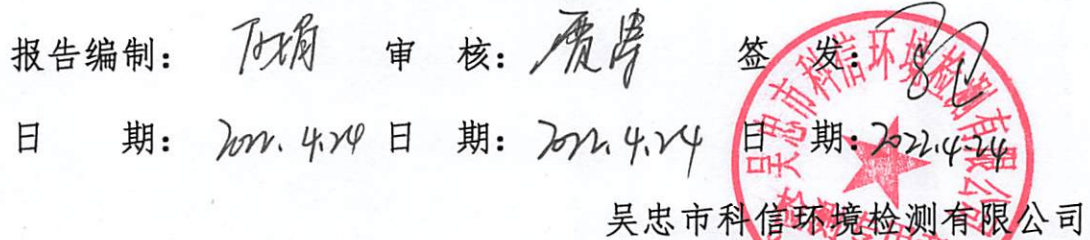 报告编制： 审 核： 签 发：
日 期：2022.4.24 日 期：2022.4.24 日 期：2022.4.24
吴忠市科信环境检测有限公司
吴忠市科信环境检测有限公司